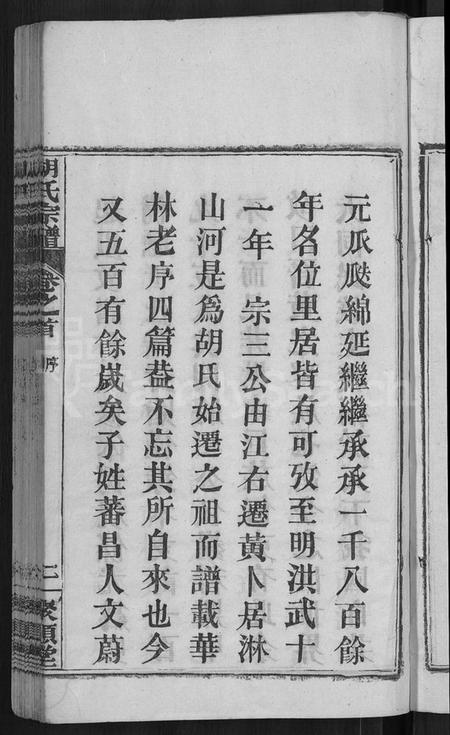 元瓜瓞綿延繼繼承承一千八百餘
年名位里居皆有可攷至明洪武十
一年　宗三公由江右遷黃卜居淋
山河是爲胡氏始遷之祖而譜載華
林老序四篇葢不忘其所自來也今
又五百有餘歲矣子姓蕃昌人文蔚
胡氏宗譜
卷之首
序